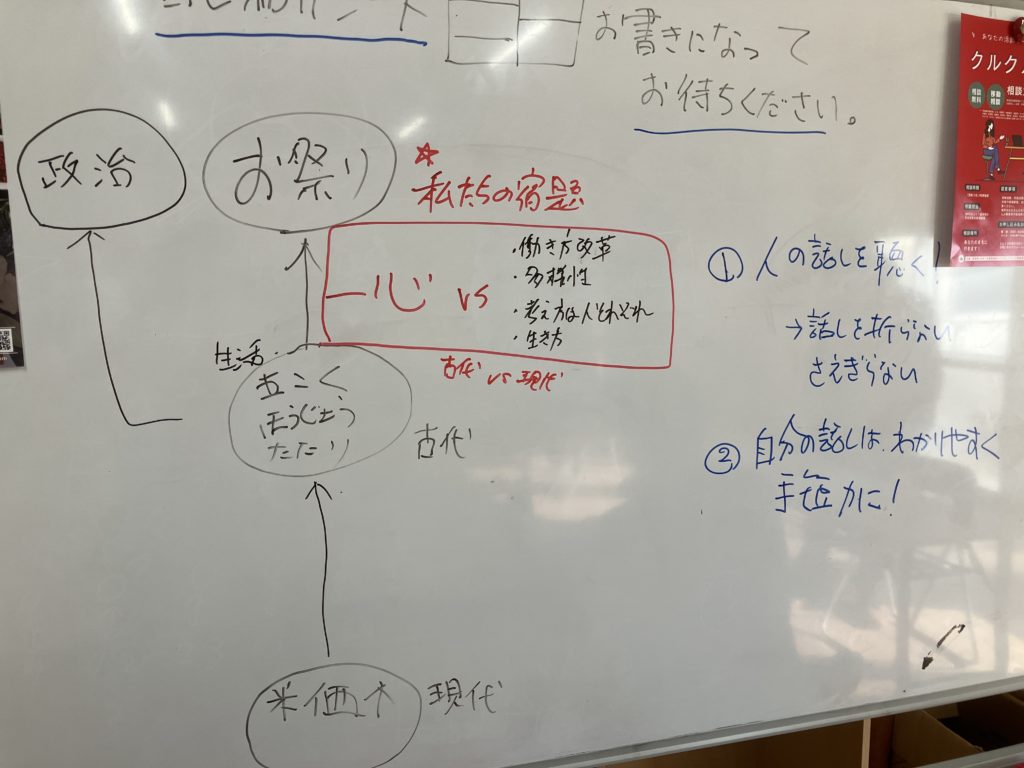 お書きになって
お待ちください。
政治
お祭り
☆
私たちの宿題
一心 vs
・働き方改革
・多様性
・考え方は人それぞれ
・生き方
古代 vs 現代
生活
五こく
ほうじょう
たたり
古代
米価
現代
① 人の話しを聴く!
→話しを折らない
さえぎらない
② 自分の話しは、わかりやすく
手短かに!
あなたの
クルクル
相談
無料